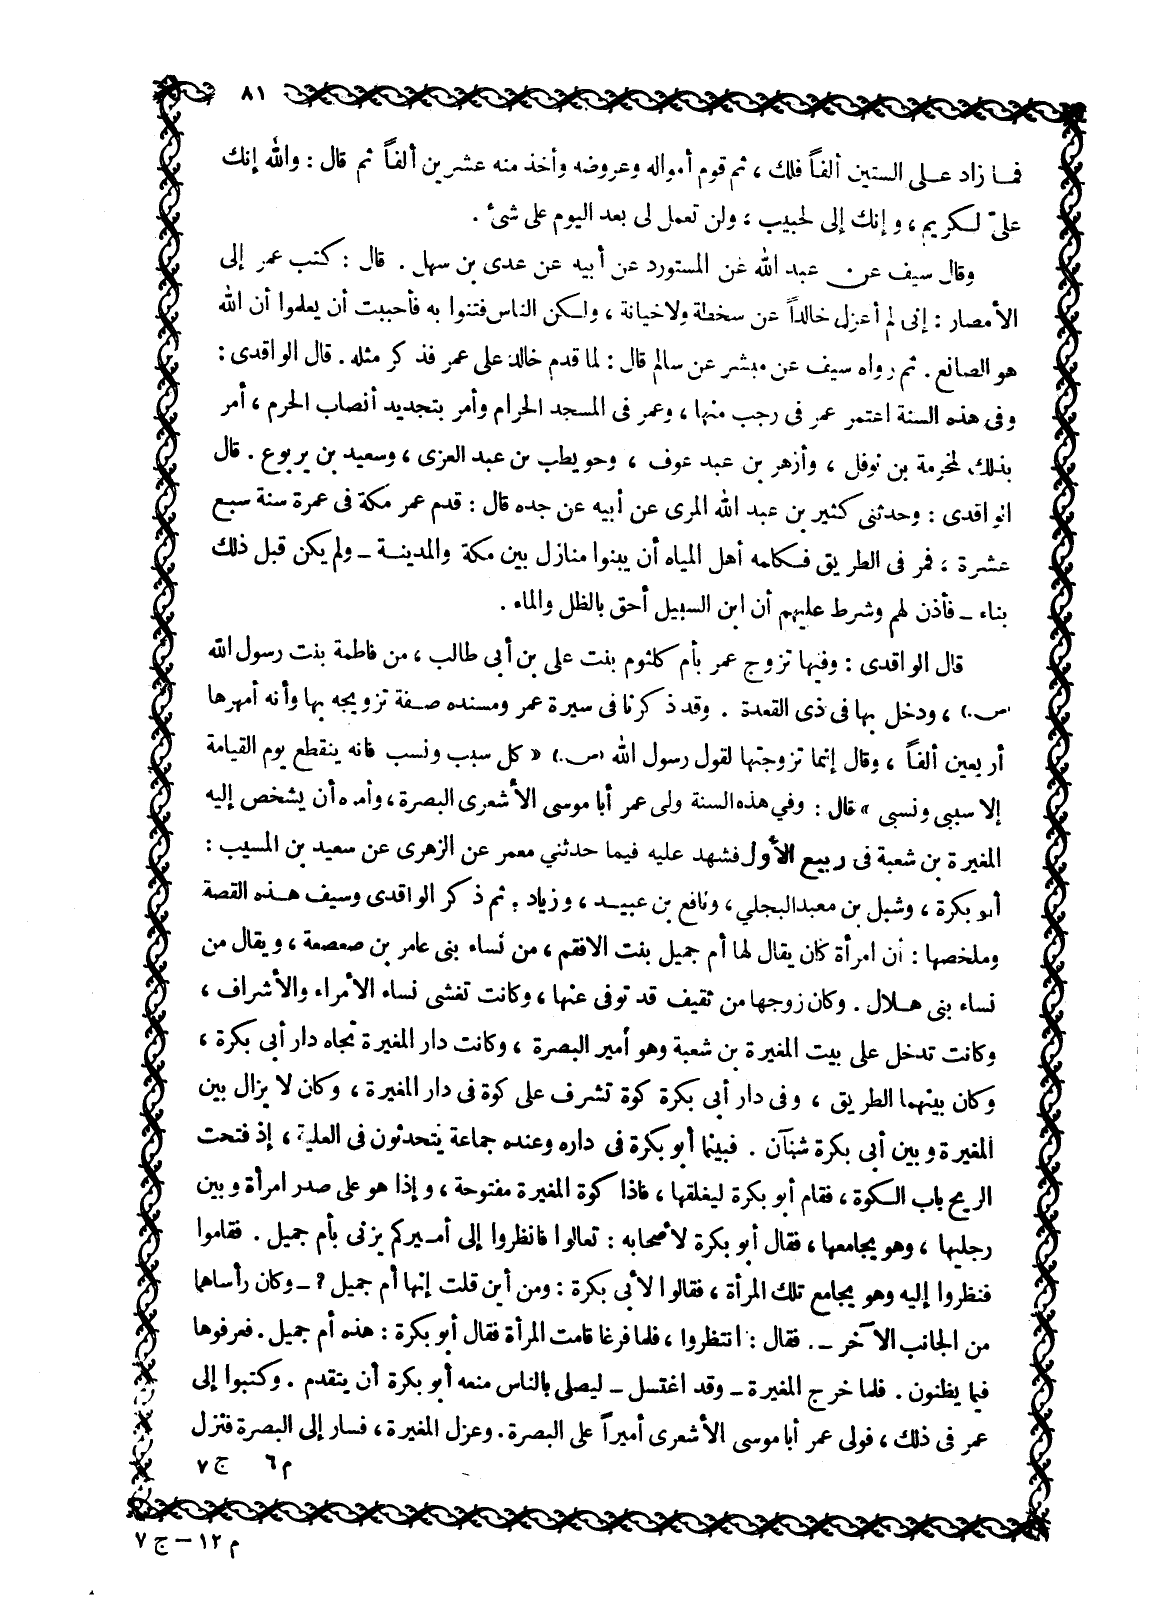 ٨١
فما زاد على الستين ألفاً فلك ، ثم قوم أمواله وعروضه وأخذ منه عشرين ألفاً ثم قال : والله إنك
علىّ لكريم ، وإنك إلى لحبيب ، ولن تعمل لى بعد اليوم على شئ .
وقال سيف عن عبد الله عن المستورد عن أبيه عن عدى بن سهل . قال : كتب عمر إلى
الأمصار : إنى لم أعزل خالداً عن سخطة ولا خيانة ، ولكن الناس فتنوا به فأحببت أن يعلموا أن الله
هو الصانع . ثم رواه سيف عن مبشر عن سالم قال : لما قدم خالد على عمر فذكر مثله . قال الواقدى :
وفى هذه السنة اعتمر عمر فى رجب منها ، وعمر فى المسجد الحرام وأمر بتجديد أنصاب الحرم ، أمر
بذلك لمخرمة بن نوفل ، وأزهر بن عبد عوف ، وحويطب بن عبد العزى ، وسعيد بن يربوع . قال
الواقدى : وحدثنى كثير بن عبد الله المرى عن أبيه عن جده قال : قدم عمر مكة فى عمرة سنة سبع
عشرة ، فمر فى الطريق فكلمه أهل المياه أن يبنوا منازل بين مكة والمدينة ــ ولم يكن قبل ذلك
بناء ــ فأذن لهم وشرط عليهم أن ابن السبيل أحق بالظل والماء .
قال الواقدى : وفيها تزوج عمر بأم كلثوم بنت على بن أبى طالب ، من فاطمة بنت رسول الله
(ص.) ، ودخل بها فى ذى القعدة . وقد ذكرنا فى سيرة عمر ومسنده صفة تزويجه بها وأنه أمهرها
أربعين ألفاً ، وقال إنما تزوجتها لقول رسول الله (ص.) « كل سبب ونسب فانه ينقطع يوم القيامة
إلا سببى ونسبى » قال : وفي هذه السنة ولى عمر أبا موسى الأشعرى البصرة ، وأمره أن يشخص إليه
المغيرة بن شعبة فى ربيع الأول فشهد عليه فيما حدثني معمر عن الزهرى عن سعيد بن المسيب :
أبو بكرة ، وشبل بن معبد البجلي ، ونافع بن عبيد ، وزياد . ثم ذكر الواقدى وسيف هذه القصة
وملخصها : أن امرأة كان يقال لها أم جميل بنت الافقم ، من نساء بنى عامر بن صعصعة ، ويقال من
نساء بنى هلال . وكان زوجها من ثقيف قد توفى عنها ، وكانت تغشى نساء الأمراء والأشراف ،
وكانت تدخل على بيت المغيرة بن شعبة وهو أمير البصرة ، وكانت دار المغيرة تجاه دار أبى بكرة ،
وكان بينهما الطريق ، وفى دار أبى بكرة كوة تشرف على كوة فى دار المغيرة ، وكان لا يزال بين
المغيرة وبين أبى بكرة شنآن . فبينما أبو بكرة فى داره وعنده جماعة يتحدثون فى العلية ، إذ فتحت
الريح باب الكوة ، فقام أبو بكرة ليغلقها ، فاذا كوة المغيرة مفتوحة ، وإذا هو على صدر امرأة وبين
رجليها ، وهو يجامعها ، فقال أبو بكرة لأصحابه : تعالوا فانظروا إلى أميركم يزنى بأم جميل . فقاموا
فنظروا إليه وهو يجامع تلك المرأة ، فقالوا لأبى بكرة : ومن أين قلت إنها أم جميل ? ــ وكان رأساهما
من الجانب الآخر ــ . فقال : انتظروا ، فلما فرغا قامت المرأة فقال أبو بكرة : هذه أم جميل . فعرفوها
فيما يظنون . فلما خرج المغيرة ــ وقد اغتسل ــ ليصلى بالناس منعه أبو بكرة أن يتقدم . وكتبوا إلى
عمر فى ذلك ، فولى عمر أبا موسى الأشعرى أميراً على البصرة . وعزل المغيرة ، فسار إلى البصرة فنزل
م ٦ ج ٧
م ١٢ – ج ٧